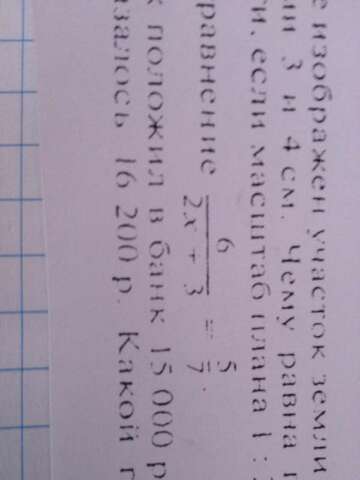 изображен участок земли
3 и 4 см. Чему равна
если масштаб плана 1 :
6/(2x + 3) = 5/7.
положил в банк 15 000 р
16 200 р. Какой